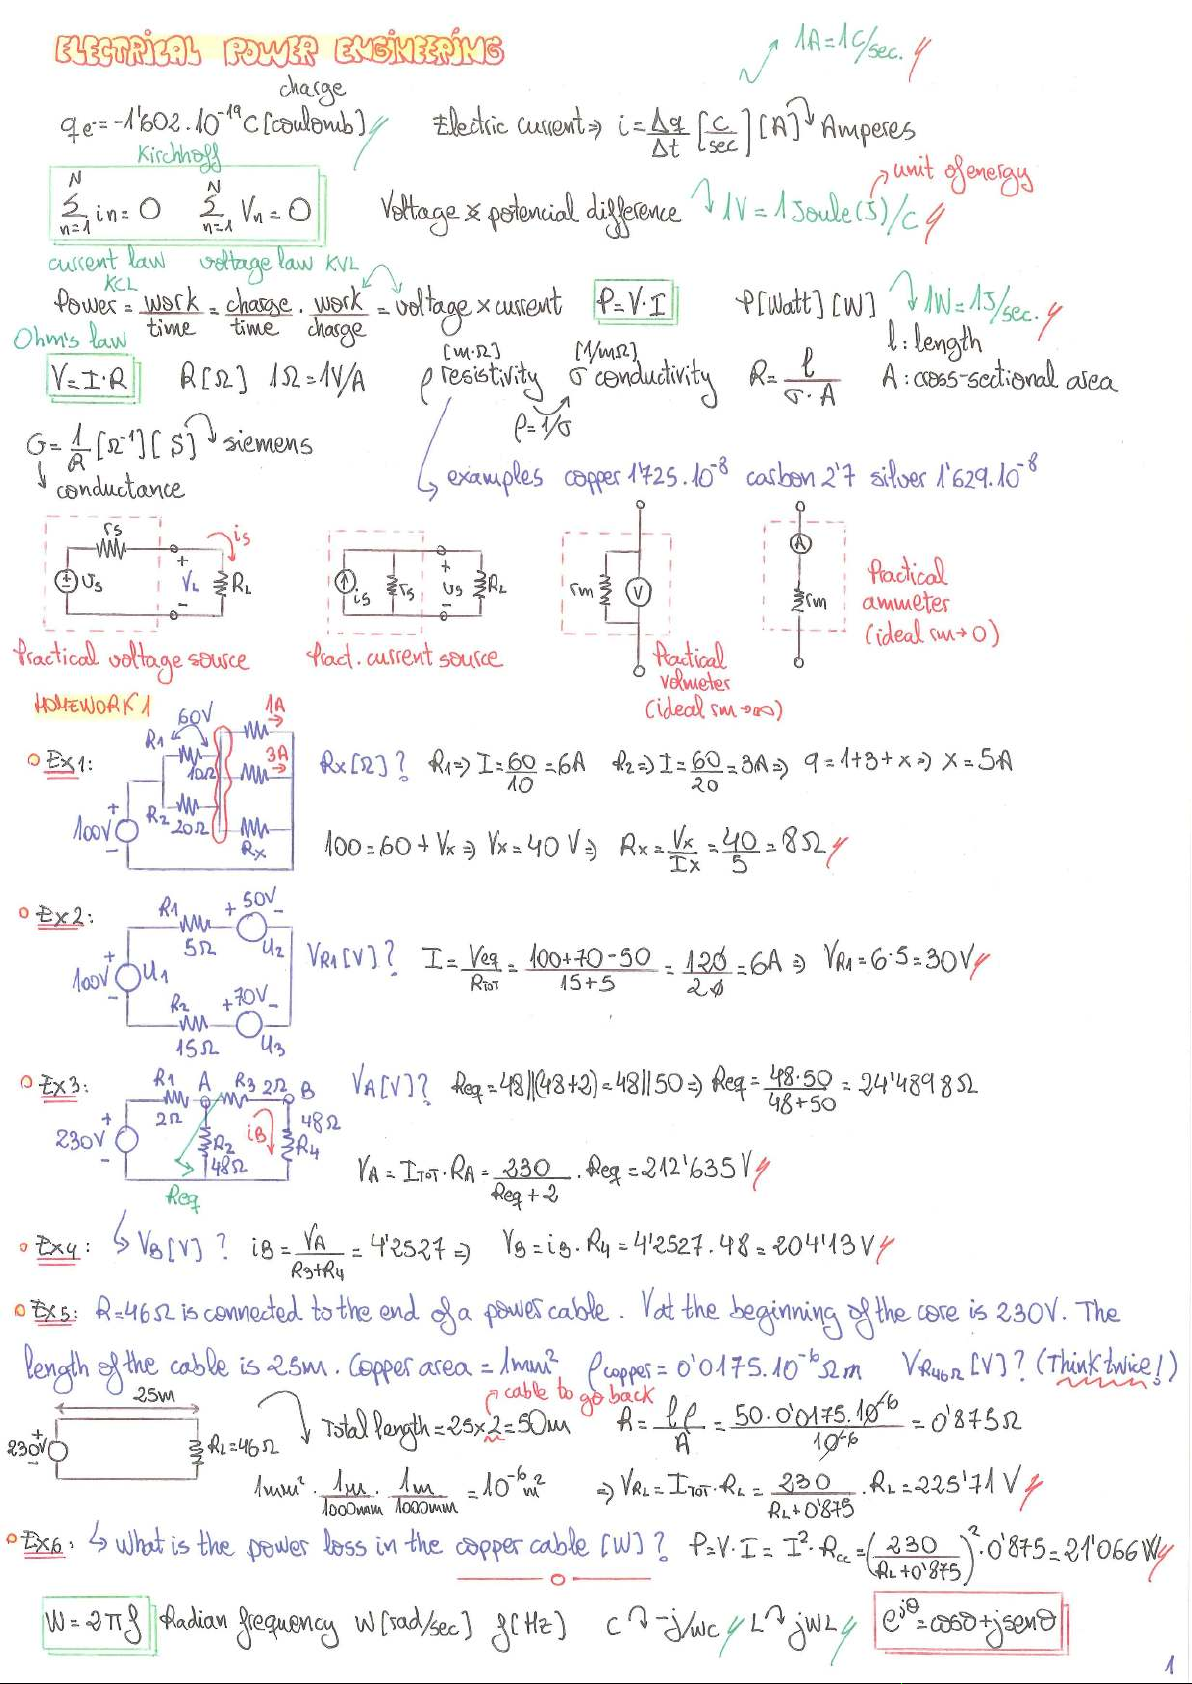 ELECTRICAL POWER ENGINEERING
1A=1C/sec.
charge
qe-=-1'602.10⁻¹⁹C [coulomb]
Electric current⇒ i=Δq/Δt [C/sec] [A] Amperes
Kirchhoff
N Σ n=1 in=0 N Σ n=1 Vn=0
unit of energy
Voltage & potencial difference 1V=1Joule(J)/C
current law KCL voltage law KVL
Power = work/time = charge/time · work/charge = voltage x current P=V·I P[Watt] [W] 1W=1J/sec.
Ohm's law
l: length
[m·Ω] [1/mΩ]
V=I·R R[Ω] 1Ω=1V/A ρ resistivity σ conductivity R=l/σ·A A: cross-sectional area
ρ=1/σ
G=1/R [Ω⁻¹] [S] siemens
conductance
examples copper 1'725.10⁻⁸ carbon 2'7 silver 1'629.10⁻⁸
rs is
+ Us + VL - RL
is rs + Us - RL
rm V
A rm
Practical voltage source
Pract. current source
Practical volmeter (ideal rm→∞)
Practical ammeter (ideal rm→0)
HOMEWORK 1
Ex1:
60V 1A
R1 10Ω 3A
R2 20Ω
+ 100V - Rx
Rx[Ω]? R1⇒I=60/10=6A R2⇒I=60/20=3A⇒ 9=1+3+x⇒x=5A
100=60+Vx⇒Vx=40V⇒ Rx=Vx/Ix=40/5=8Ω
Ex2:
R1 5Ω + 50V - U2
+ 100V - U1
R2 15Ω +70V- U3
VR1[V]? I=Veq/RTOT=100+70-50/15+5=120/20=6A⇒ VR1=6·5=30V
Ex3:
R1 2Ω A R3 2Ω B
+ 230V - R2 48Ω iB 48Ω R4
Req
VA[V]? Req=48||(48+2)=48||50⇒Req=48·50/48+50=24'4898Ω
VA=ITOT·RA=230/Req+2·Req=212'635V
Ex4: VB[V]? iB=VA/R3+R4=4'2527⇒ VB=iB·R4=4'2527·48=204'13V
Ex5: R=46Ω is connected to the end of a power cable. V at the beginning of the core is 230V. The
length of the cable is 25m. Copper area=1mm² ρcopper=0'0175.10⁻⁶Ωm VR46Ω[V]? (Think twice!)
25m
cable to go back
230V + - RL=46Ω
Total length=25x2=50m R=lρ/A=50·0'0175.10⁻⁶/10⁻⁶=0'875Ω
1mm²·1m/1000mm·1m/1000mm=10⁻⁶m² ⇒VRL=ITOT·RL=230/RL+0'875·RL=225'71V
Ex6: What is the power loss in the copper cable [W]? P=V·I=I²·Rcc=(230/RL+0'875)²·0'875=21'066W
W=2πf Radian frequency W[rad/sec] f(Hz) C -j/wc L jWL e^jθ=cosθ+jsenθ
1